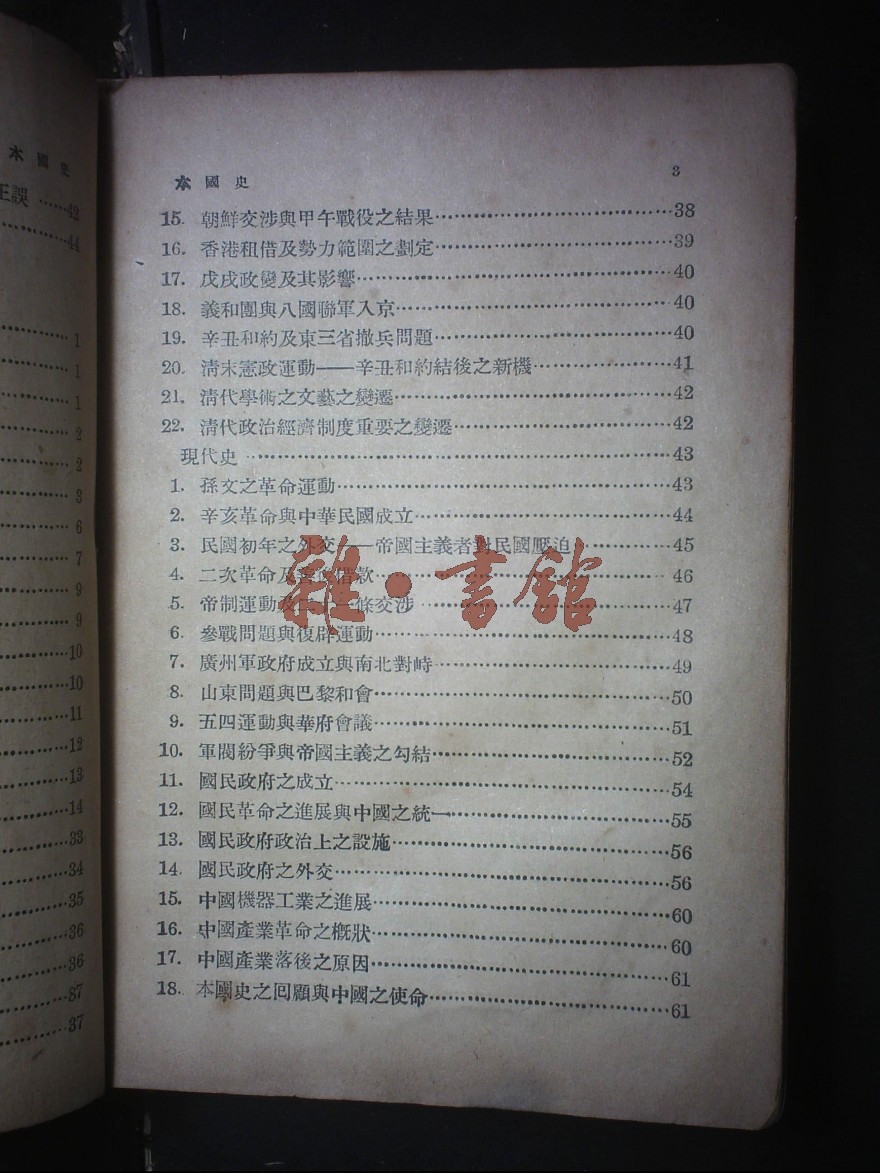 木國史
正誤……42
44
1
1
1
2
2
3
6
7
9
9
10
10
11
12
13
14
33
34
35
36
36
37
37
本國史 3
15. 朝鮮交涉與甲午戰役之結果……38
16. 香港租借及勢力範圍之劃定……39
17. 戊戌政變及其影響……40
18. 義和團與八國聯軍入京……40
19. 辛丑和約及東三省撤兵問題……40
20. 清末憲政運動——辛丑和約結後之新機……41
21. 清代學術之文藝之變遷……42
22. 清代政治經濟制度重要之變遷……42
現代史……43
1. 孫文之革命運動……43
2. 辛亥革命與中華民國成立……44
3. 民國初年之外交——帝國主義者對民國壓迫……45
4. 二次革命及善後借款……46
5. 帝制運動及二十一條交涉……47
6. 參戰問題與復辟運動……48
7. 廣州軍政府成立與南北對峙……49
8. 山東問題與巴黎和會……50
9. 五四運動與華府會議……51
10. 軍閥紛爭與帝國主義之勾結……52
11. 國民政府之成立……54
12. 國民革命之進展與中國之統一……55
13. 國民政府政治上之設施……56
14. 國民政府之外交……56
15. 中國機器工業之進展……60
16. 中國產業革命之概狀……60
17. 中國產業落後之原因……61
18. 本國史之囘顧與中國之使命……61
雜·書館